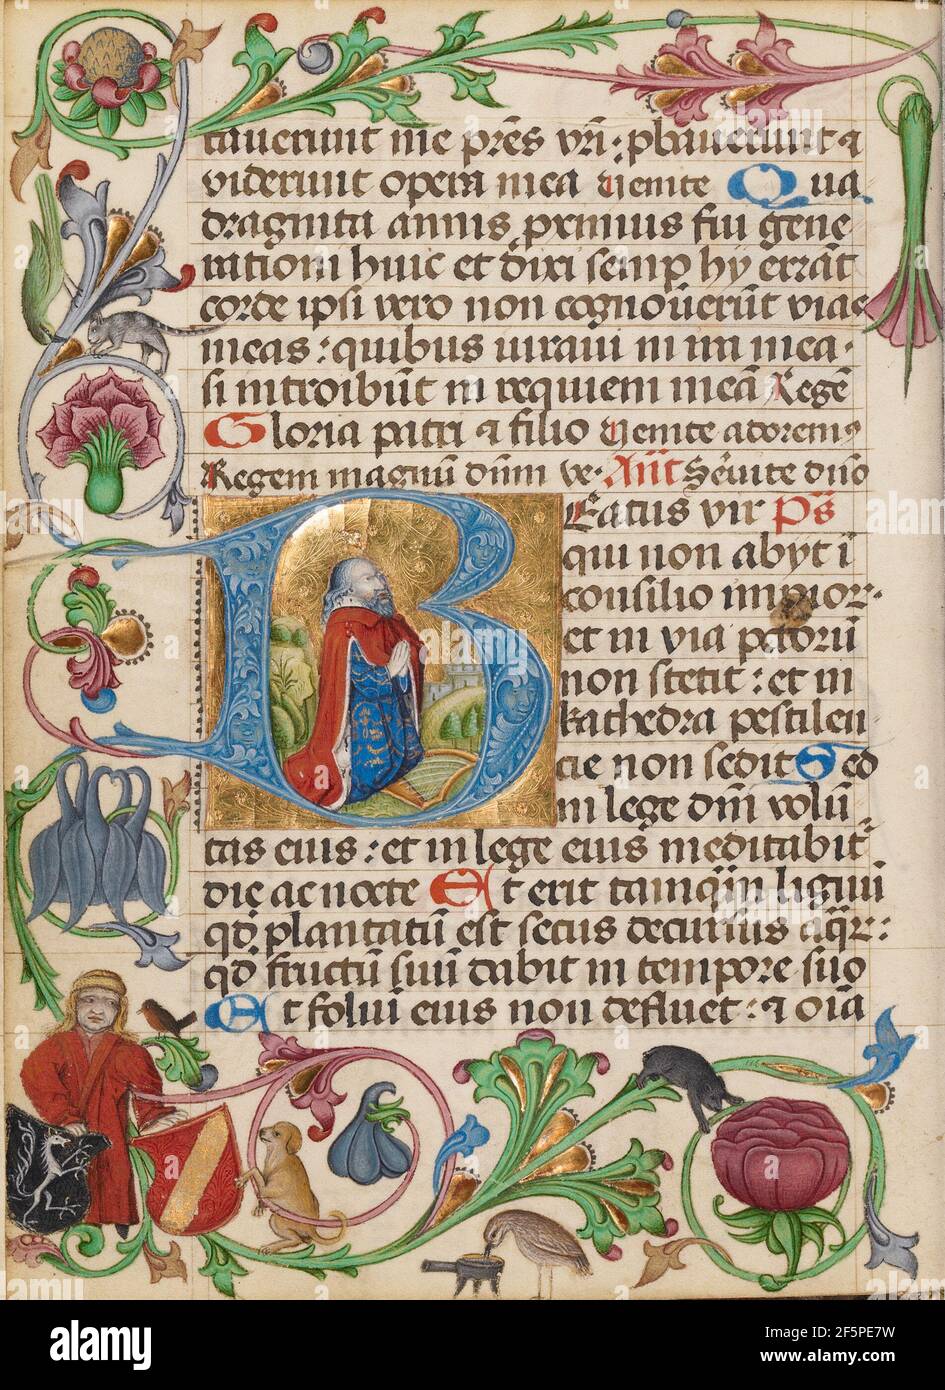 tauerunt me pres vri : pbauerunt &
viderunt opera mea Uenite Qua
draginta annis pximus fui gene
rationi huic et dixi semp hy errāt
corde ipsi vero non cognouerūt vias
meas : quibus iuraui in ira mea .
si introibūt in requiem meā Regē
Gloria patri & filio Uenite adorem9
Regem magnū dūm ve. Añt Seruite dño
Eatus vir Ps
B qui non abyt ī
consilio impior .
et in via pctorū
non stetit : et in
kathedra pestilen
cie non sedit Sed
in lege dnī volū
tas eius : et in lege eius meditabit
die ac nocte Et erit tamqm lignū
qd plantatū est secus decursus aqr :
qd fructū suū dabit in tempore suo
Et foliū eius non defluet : & oīa
alamy
alamy
Image ID: 2F5PE7W
www.alamy.com